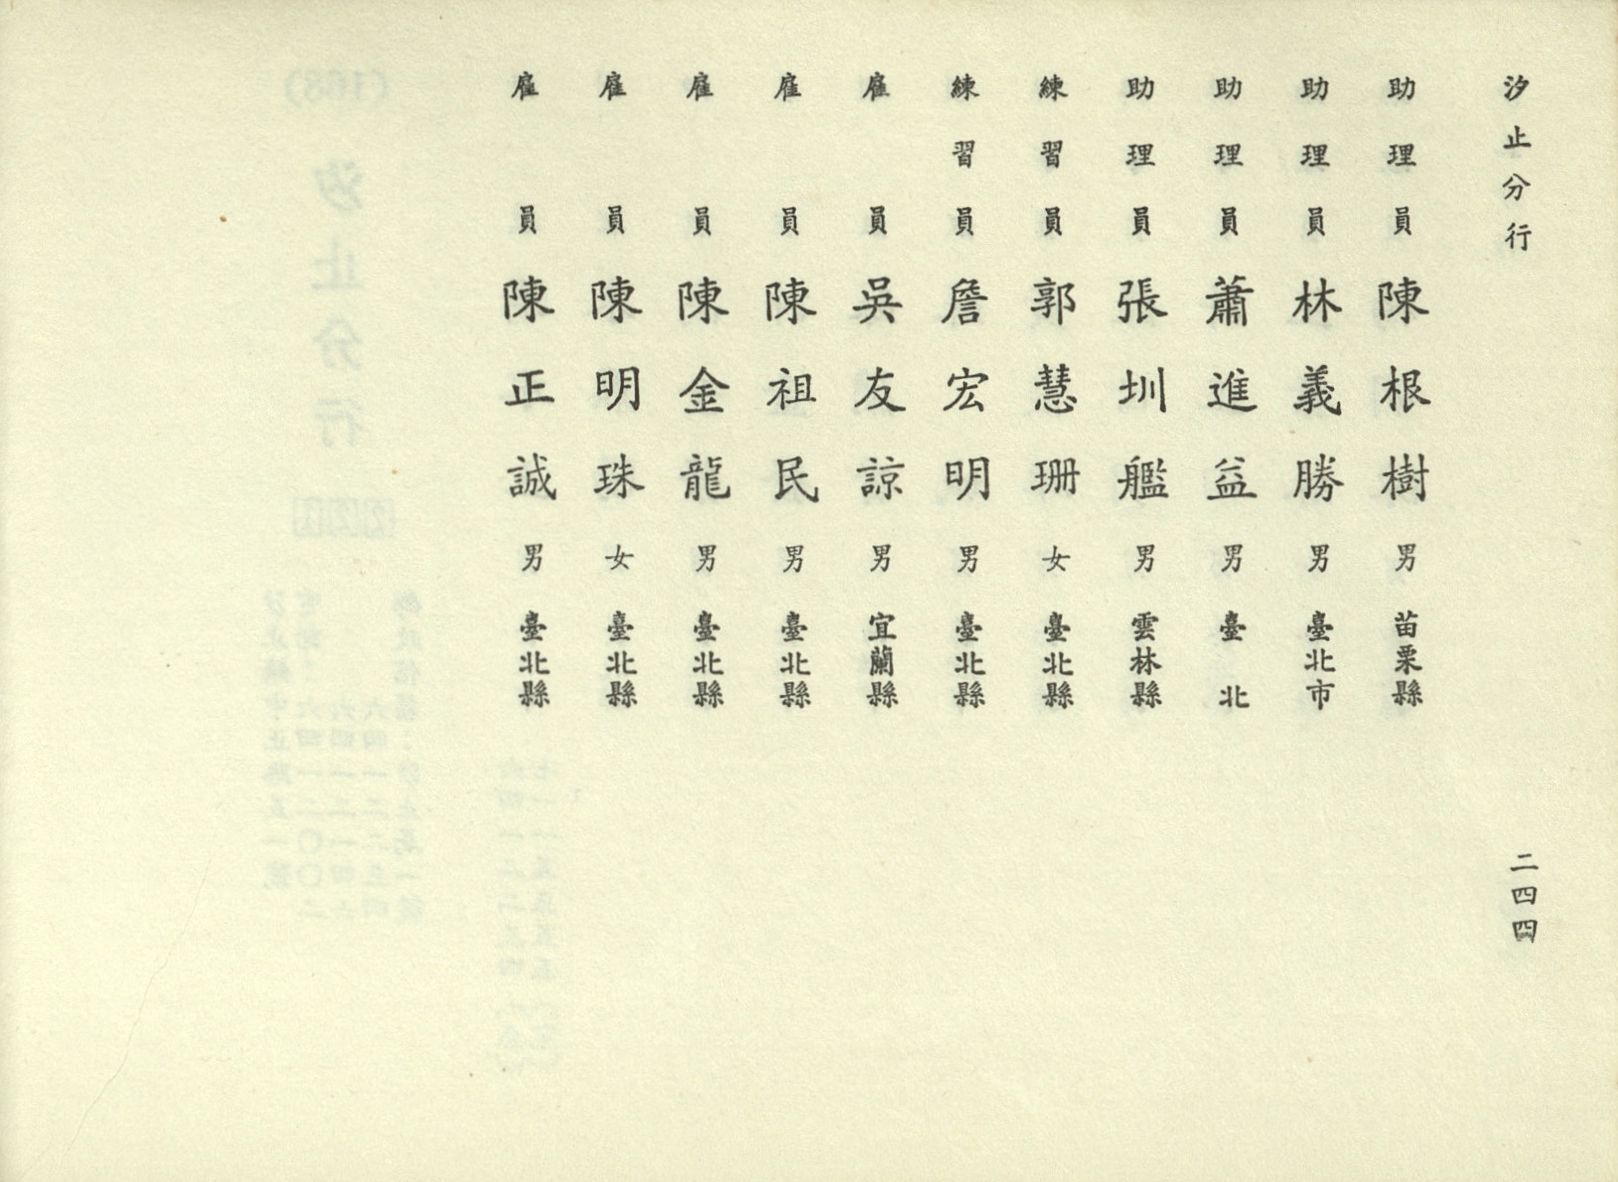 汐止分行
二四四
助理員 陳根樹 男 苗栗縣
助理員 林義勝 男 臺北市
助理員 蕭進益 男 臺北
助理員 張圳艦 男 雲林縣
練習員 郭慧珊 女 臺北縣
練習員 詹宏明 男 臺北縣
雇員 吳友諒 男 宜蘭縣
雇員 陳祖民 男 臺北縣
雇員 陳金龍 男 臺北縣
雇員 陳明珠 女 臺北縣
雇員 陳正誠 男 臺北縣